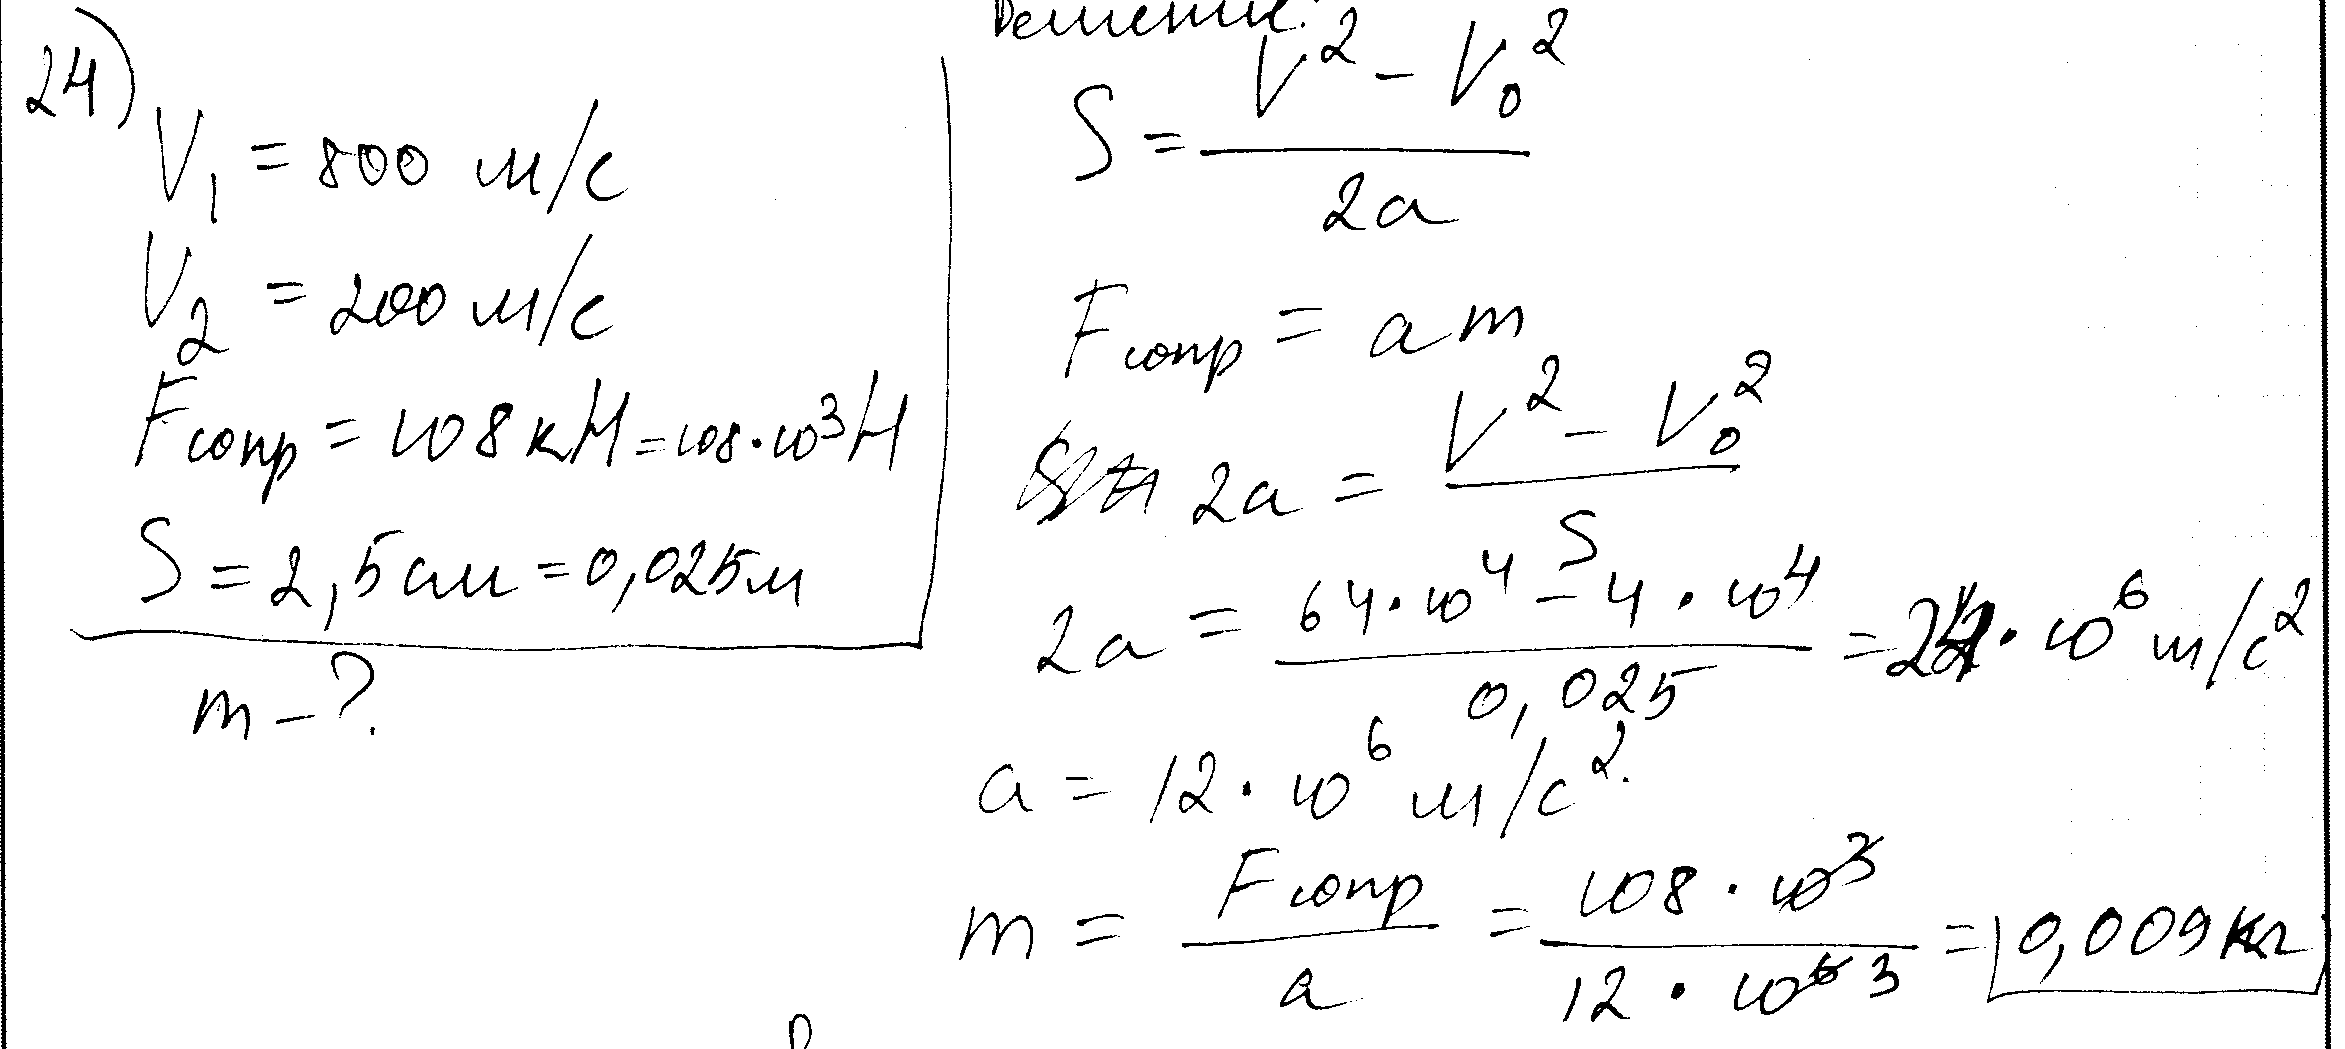 24)
V₁ = 800 м/с
V₂ = 200 м/с
Fсопр = 108 кН = 108·10³ Н
S = 2,5 см = 0,025 м
m – ?
Решение:
S = (V² – V₀²) / 2a
Fсопр = am
2a = (V² – V₀²) / S
2a = (64·10⁴ – 4·10⁴) / 0,025 = 24·10⁶ м/с²
a = 12·10⁶ м/с².
m = Fсопр / a = 108·10³ / 12·10⁶ 3 = 0,009 кг